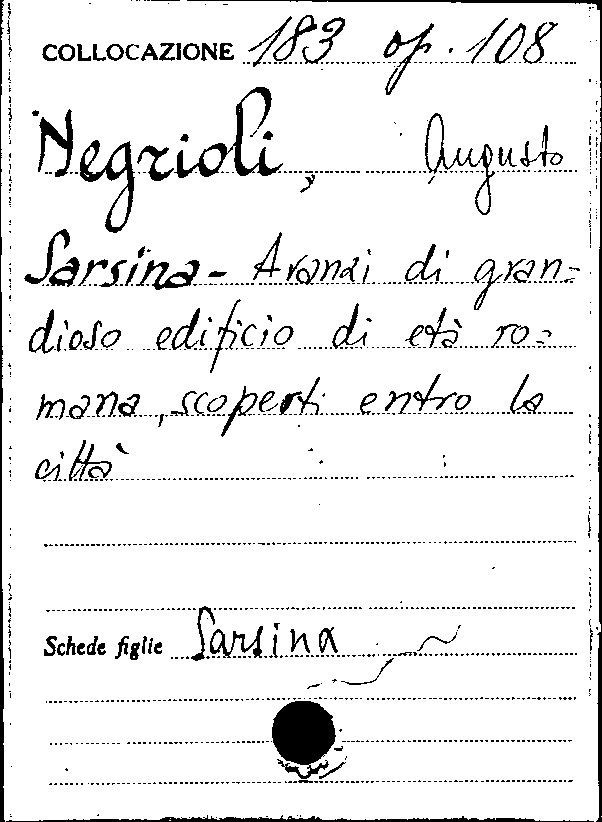 COLLOCAZIONE 183 op. 108
Negrioli, Augusto
Sarsina - Avanzi di gran=
dioso edificio di età ro=
mana, scoperti entro la
città
Schede figlie Sarsina